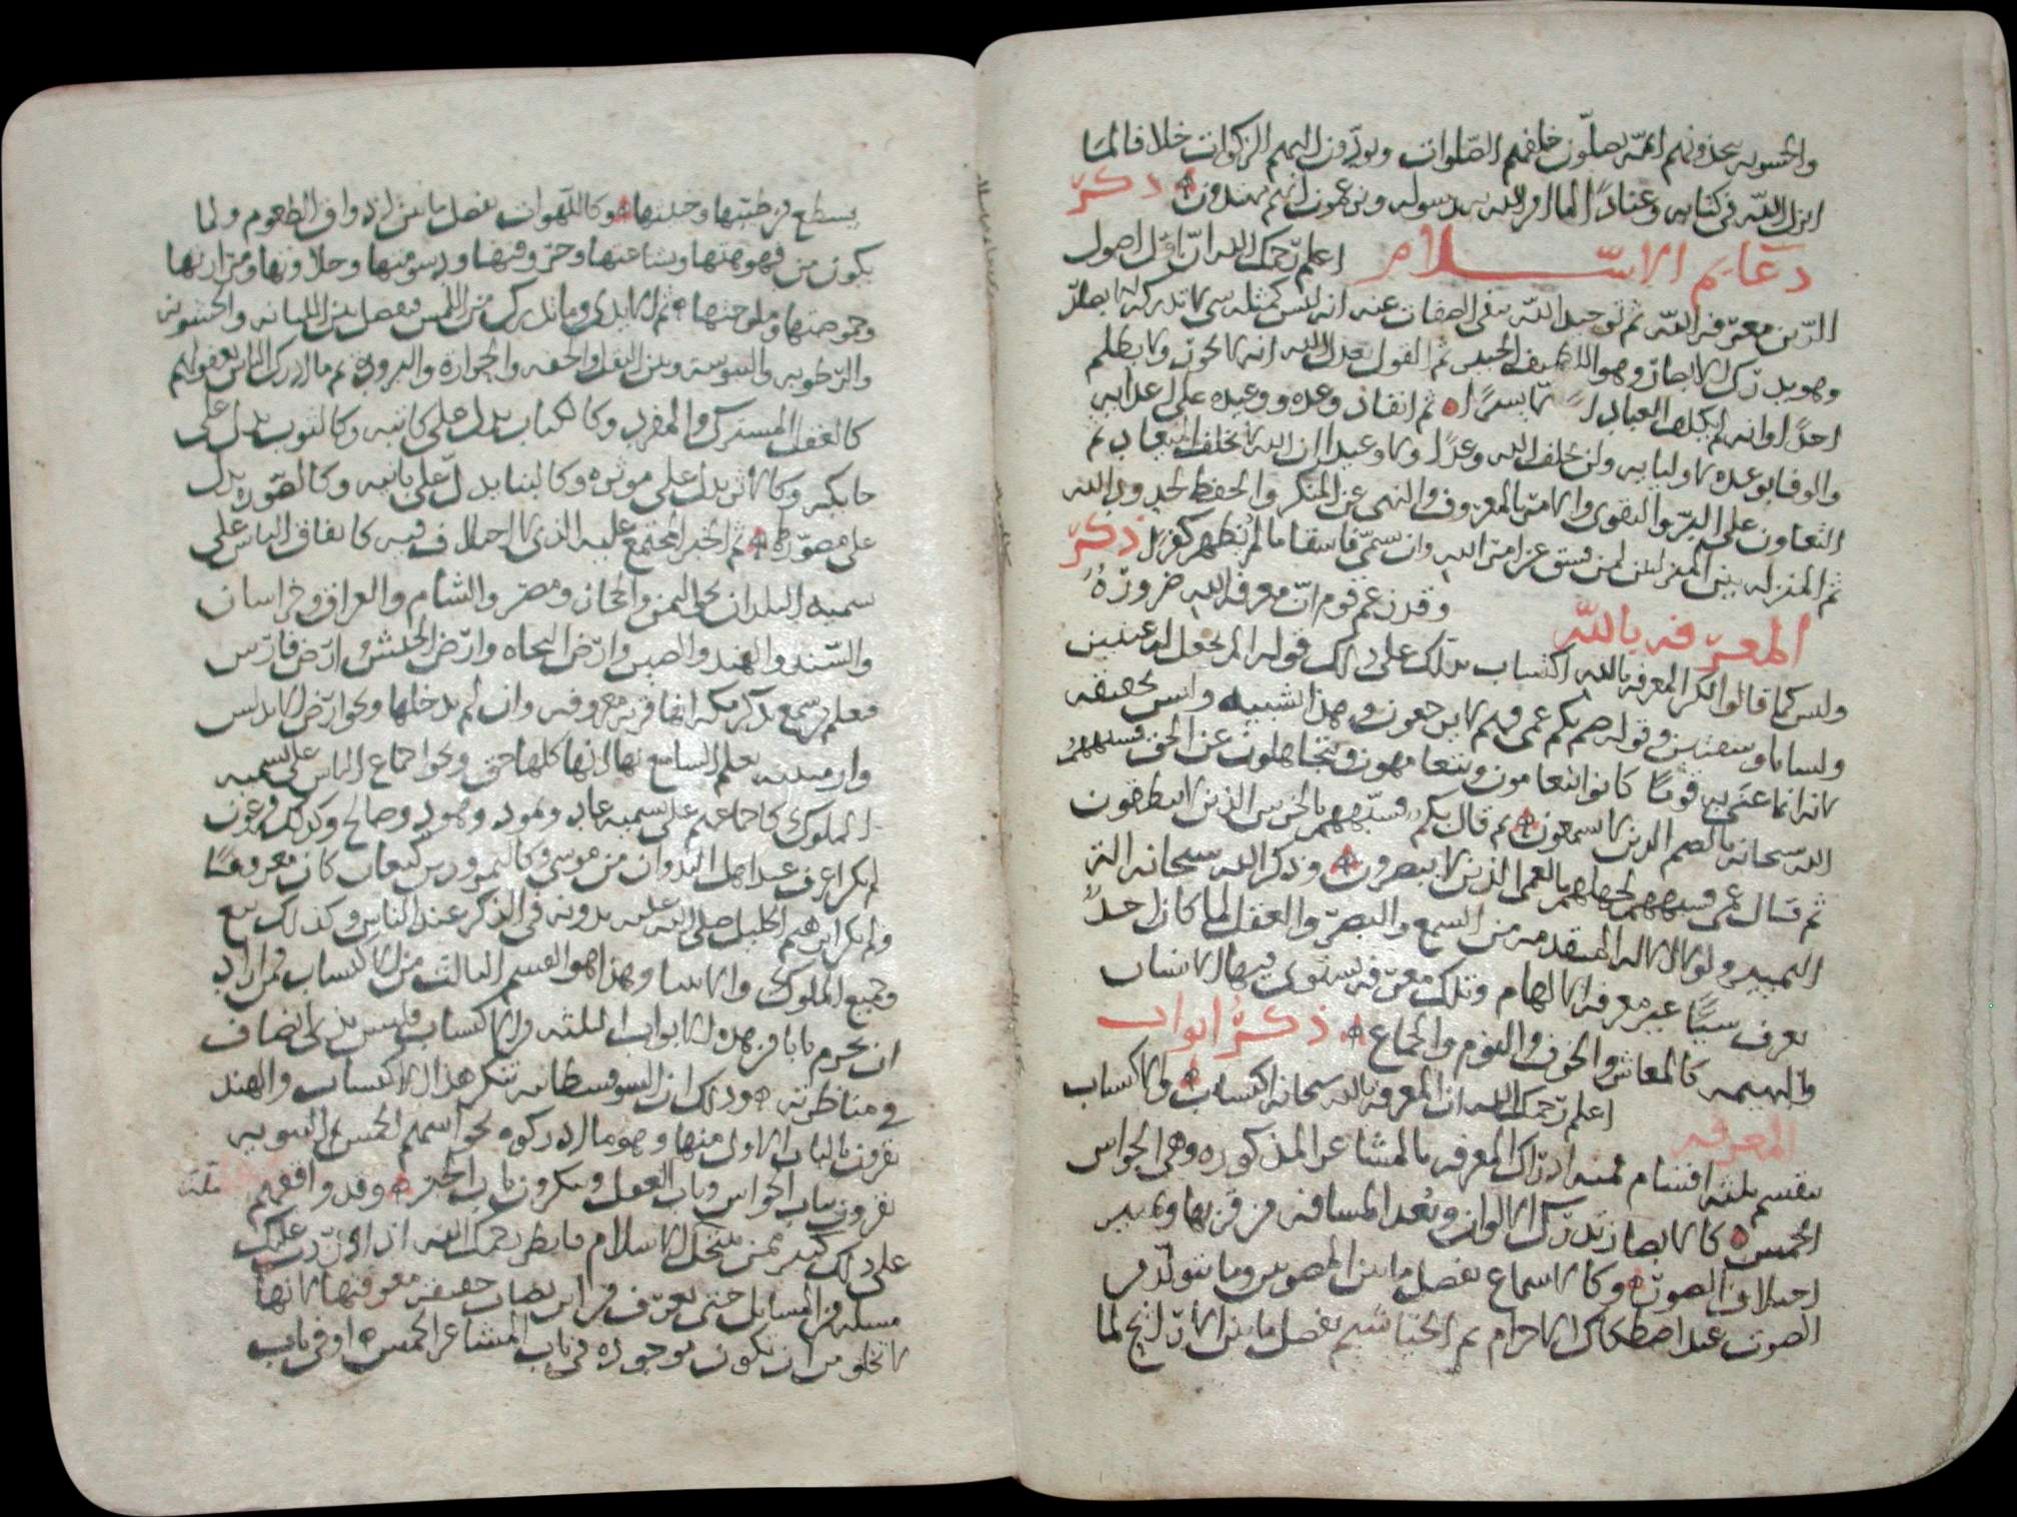 والحشويه يتخذونهم ايمه يصلّون خلفهم الصّلوات ويودّون اليهم الزكوات خلافا لما
انزل الله في كتابه وعنادًا لما امر الله به رسوله ويزعمون انهم مهتدون ذكر
دعايم الاسلام اعلم رحمك الله ان اول اصول
الدّين معرفة الله ثم توحيد الله بنفي الصفات عنه انه ليس كمثله شي لا تدركه الابصار
وهو يدرك الابصار وهو اللطيف الخبير ثم القول بعدل الله انه لا يجور ولا يظلم
احدًا وانه لم يكلف العباد الا ثم انفاذ وعده ووعيده على اعدايه
والوفا بوعده لاوليايه ولن يخلف الله وعدًا ولا وعيدا ان الله لا يخلف الميعاد ثم
التعاون على البر والتقوى والامر بالمعروف والنهي عن المنكر والحفظ لحدود الله
ثم المنزله بين المنزلتين لمن فسق عن امر الله وان سمّي فاسقا ما لم يظهر كفرًا ذكر
المعرفه بالله وقد زعم قوم انّ معرفة الله ضرورةٌ
وليس كما قالوا لكن المعرفه بالله اكتساب يدلك على ذلك قوله الم نجعل له عينين
ولسانا وشفتين وقوله صم بكم عمي فهم لا يرجعون وهذا تشبيه وليس بحقيقه
لانه انما عنى به قومًا كانوا يتعامون ويتعامهون ويتجاهلون عن الحق فشبههم
الله سبحانه بالصم الذين لا يسمعون ثم قال بكم فشبههم بالخرس الذين لا ينطقون
ثم قال عمي فشبههم لجهلهم بالعمي الذين لا يبصرون وذكر الله سبحانه الة
التمييز ولولا الاله المتقدمه من السمع والبصر والعقل لما كان احدًا
يعرف شييًا غير معرفة الالهام وتلك معرفه يستوي فيها الانسان
والبهيمه كالمعاش والخوف والنوم والجماع ذكر ابواب
المعرفه اعلم رحمك الله ان المعرفه بالله سبحانه اكتساب والاكتساب
ينقسم ثلثه اقسام فمنه ادراك المعرفه بالمشاعر المذكوره وهي الحواس
الخمس كالابصار تدرك الالوان وبُعد المسافه من قربها وتمييز
اختلاف الصوّر وكالاسماع تفصل ما بين الصوتين وما يتولّد من
الصوت عند اصطكاك الاجرام ثم الخياشيم تفصل ما بين الاراييح لما
يسطع من طيبها وخبيثها وكاللهوات تفصل ما بين اذواق الطعوم ولما
يكون من قهومتها وبشاعتها وحروفتها ودسومتها وحلاوتها ومرارتها
وحموضتها وملوحتها ثم الايدي وما تدرك من اللمس فيفصل بين الليانه والخشونه
والرطوبه واليبوسة وبين الثقل والخفه والحراره والبروده ثم ما ادرك الناس بعقولهم
كالعقل المشترك والمفرد وكالكتاب يدل على كاتبه وكالثوب يدل على
حايكه وكالاثر يدل على موثره وكالبنا يدلّ على بانيه وكالصّوره يدل
على مصوّرها ثم الخبر المجتمع عليه الذي لا اختلاف فيه كاتفاق الناس على
تسميه البلدان نحو اليمن والحجاز ومصر والشام والعراق وخراسان
والسّند والهند والصين وارض البجاه وارض الحبش وارض فارس
فيعلم من سمع بذكر مكه انها قريه معروفه وان لم يدخلها ونحو ارض الاندلس
وارمينيه يعلم السامع بها انها كلها حق ونحو اجماع الناس على تسميه
الملوك كاجماعهم على تسميه عاد وثمود وهود وصالح وكذلك فرعون
لم يكن اعرف عند اهل الزمان من موسى وكالنمرود بن كنعان كان معروفًا
ولم يكن ابرهيم الخليل صلى الله عليه بدونه في الذكر عند الناس وكذلك تبع
وجميع الملوك والانبيا وهذا هو القسم الثالث من الاكتساب فمن اراد
ان يخرم بابا من هذه الابواب الثلثه والاكتساب فليس بذي انصاف
في مناظرته وذلك ان السوفسطانيه تنكر هذا الاكتساب والهند
تقرون بالباب الاول منها وهو ما ادركوه بحواسهم الخمس الثنويه
يقرون بباب الحواس وباب العقل وينكرون باب الخبر وقد وافقهم
على ذلك كثير ممن ينتحل الاسلام فانظر رحمك الله اذا وردت عليك
مسله من المسايل حتى تعرف من اين تصاب حقيقة معرفتها لانها
لا تخلو من ان تكون موجوده في باب المشاعر الخمس او في باب